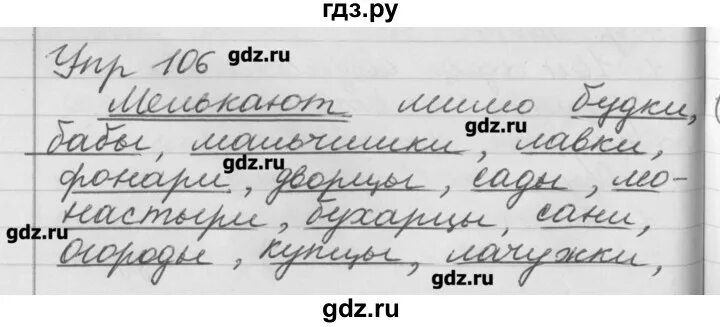 гдз.ру
Упр 106 gdz.ru
Мелькают мимо будки,
gdz.ru
бабы, мальчишки, лавки,
gdz.ru
фонари, дворцы, сады, мо-
настыри, бухарцы, сани,
gdz.ru
огороды, купцы, лачужки,
gdz.ru
gdz.ru